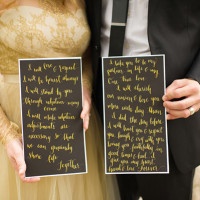 I will love & respect
I will be honest always
I will stand by you
through whatever may
come
I will make whatever
adjustments are
necessary so that
we can genuinely
share life
together
I take you to be my
partner in life & my
one
I will cherish
our union & love you
more each day than
I did the day before
I will trust you & respect
you, laugh w/ you & cry
with you, loving
you faithfully in
good times & bad